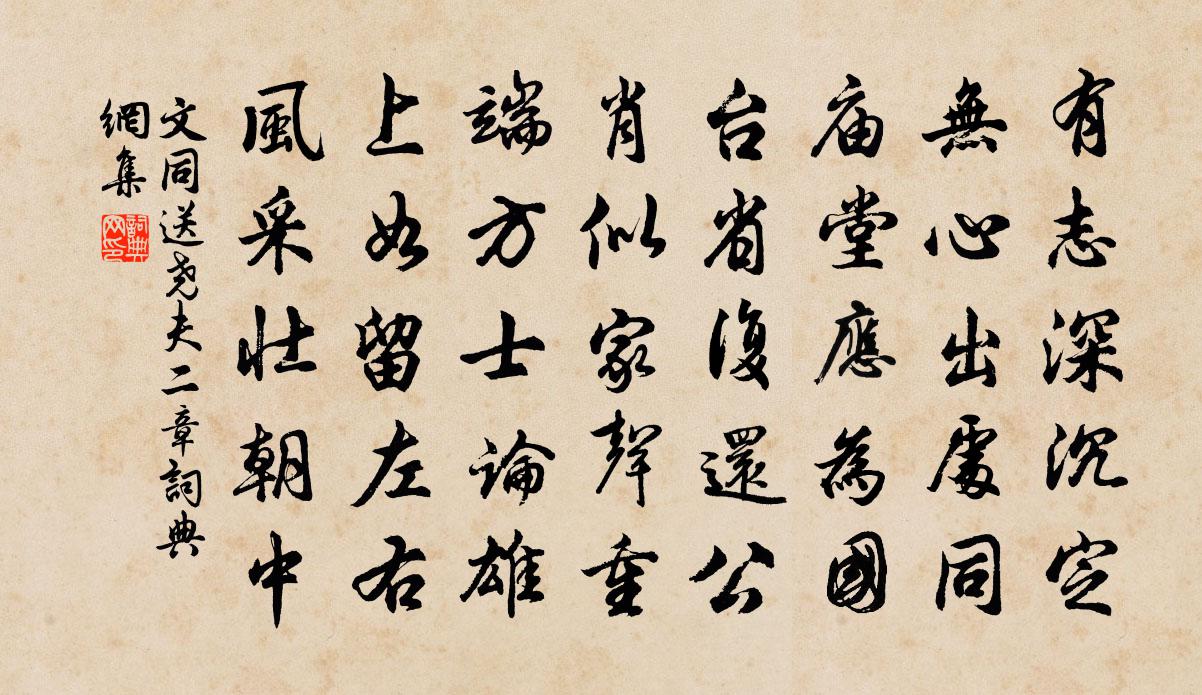 有志深沉定
無心出處同
庙堂應為國
台省復還公
肖似家聲重
端方士論雄
上如留左右
風采壯朝中
文同送尧夫二章詞典
網集
詞典
网印